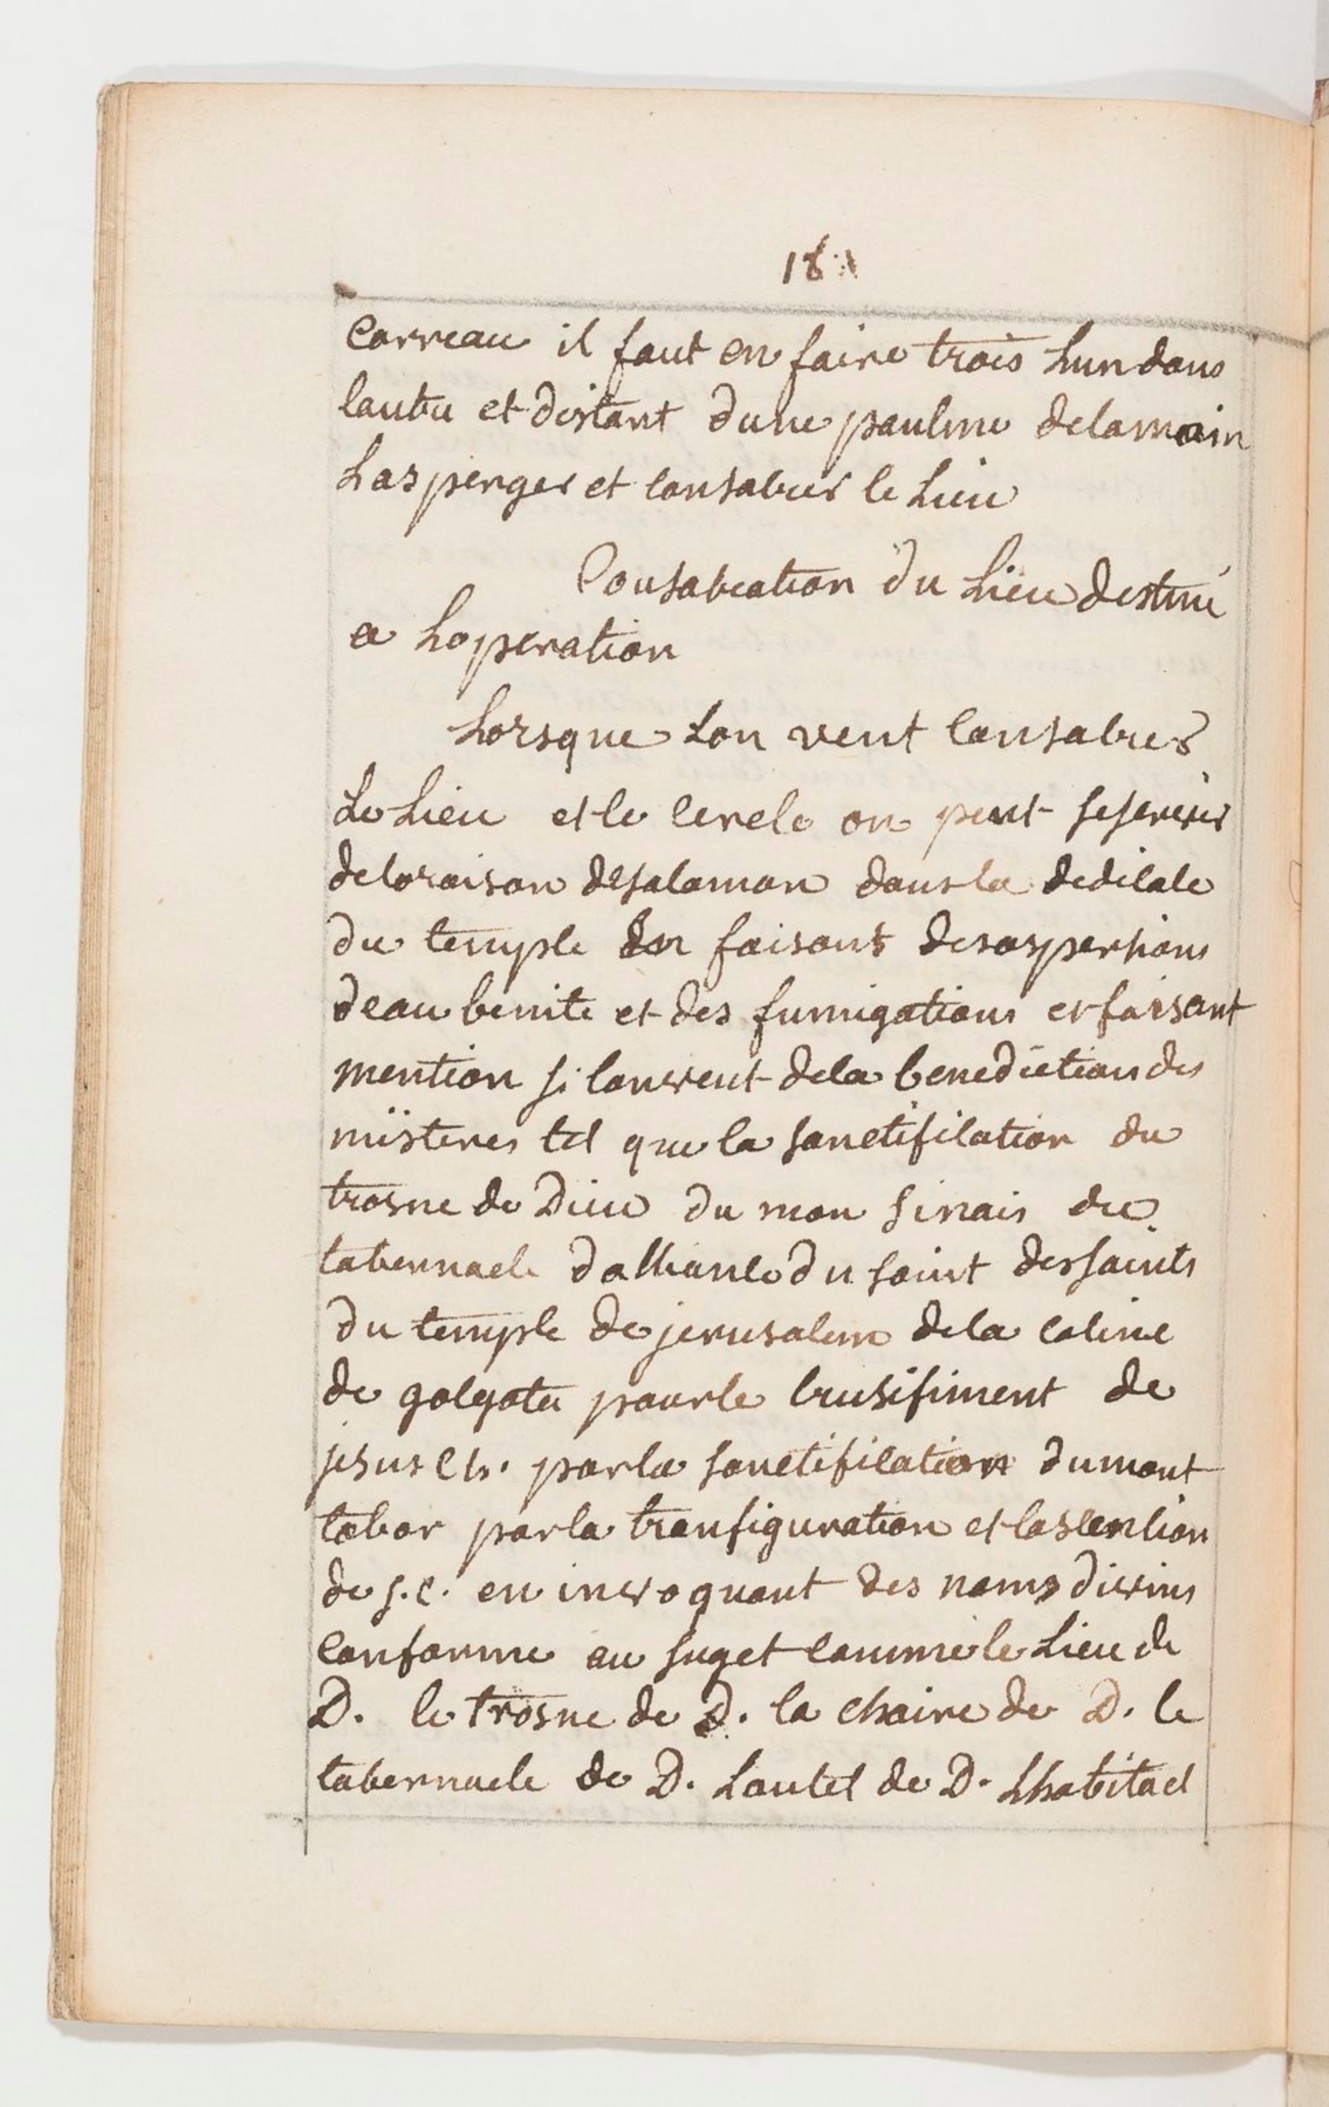 18
Carreau il faut en faire trois Lun dans
lautre et distant dune paulme de la main
Lasperger et consacrer le Lieu
Consacration du Lieu destiné
a Loperation
Lorsque Lon veut consacrer
Le Lieu et le cercle on peut se servir
de loraison de salomon dans la dedicace
du temple En faisant des aspersions
deau benite et des fumigations et faisant
mention si lon veut de la benediction des
misteres tel que la sanctification du
trosne de Dieu du mon sinais du
tabernacle dalliance du saint des saints
du temple de jerusalem de la coline
de golgota pour le crusifiment de
jesus ch. par la sanctification du mont
tabor par la tranfiguration et lascention
de j.c. en invoquant des noms divins
conforme au suget comme le Lieu de
D. le trosne de D. la chaire de D. le
tabernacle de D. Lautel de D. Lhabitacl